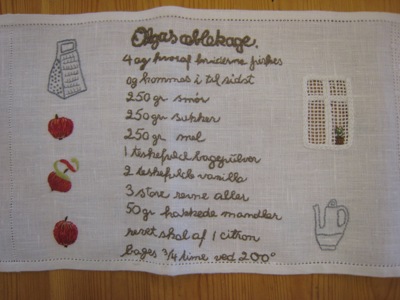 Olgas æblekage.
4 æg hvoraf hviderne piskes
og kommes i til sidst
250 gr smør
250 gr sukker
250 gr mel
1 teskefuld bagepulver
2 teskefulde vanilla
3 store revne æbler
50 gr hakkede mandler
revet skal af 1 citron
bages 3/4 time ved 200°